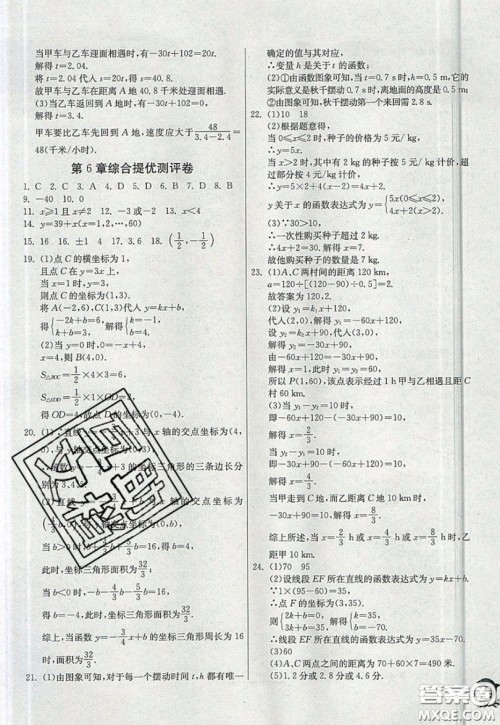 当甲车与乙车迎面相遇时,有-30t+102=20t.
解得 t=2.04.
将 t=2.04 代入 s=20t,得 s=40.8.
即两车在距离 A 地 40.8 千米处迎面相遇.
(3)当乙车返回到 A 地时,有-30t+102=0.
解得 t=3.4.
甲车要比乙车先回到 A 地,速度应大于 48/(3.4-2.4)=
48(千米/小时).
第 6 章综合提优测评卷
1. C 2. D 3. B 4. C 5. D 6. D 7. D 8. B
9. -40 10. 0
11. x≥1 且 x≠2 12. -3 或-2 13. x<4
14. y=39+x(x=1,2,…,60)
15. 16 16. ±1 4 17. 3,6 18. (1/2,-1/2)
19. (1)点 C 的横坐标为 1,
且点 C 在 y=3x 上,
当 x=1 时,y=3,
即点 C 的坐标为(1,3).
将 A(-2,6),C(1,3)代入,
得{-2k+b=6, k+b=3, 解得{k=-1, b=4.
(2)当 y=0 时,有-x+4=0,
解得 x=4,则 B(4,0).
S△BOC=1/2×4×3=6.
得 OD=4,故点 D
20. (1)∵直线
+3 与 x 轴的交点坐标为(4,
∴函数
+3 的坐标三角形的三条边长分
(2)直线
当 b>0 时,
当 b<0 时,-b-4/3b-5/3b=16,得 b=-4,
此时,坐标三角形面积为 32/3.
综上,当函数 y=-3/4x+b 的坐标三角形周长为 16
时,面积为 32/3.
21. (1)由图象可知,对于每一个摆动时间 t,h 都有唯一
确定的值与其对应,
∴变量 h 是关于 t 的函数.
(2)①由函数图象可知,当 t=0.7 s 时,h=0.5 m,它
的实际意义是秋千摆动 0.7 s 时,离地面的高度是 0.5 m;
②由图象可知,秋千摆动第一个来回需 2.8 s.
22. (1)10 18
(2)根据题意得,
当 0≤x≤2 时,种子的价格为 5 元/kg,
∴y=5x;
当 x>2 时,其中有 2 kg 的种子按 5 元/kg 计价,
超过部分按 4 元/kg 计价,
∴y=5×2+4(x-2)=4x+2.
y 关于 x 的函数表达式为 y={5x(0≤x≤2), 4x+2(x>2).
(3)∵30>10,
∴一次性购买种子超过 2 kg.
∴4x+2=30.
解得 x=7.
故购买种子的数量是 7 kg.
23. (1)A,C 两村间的距离 120 km.
a=120÷[(120-90)÷0.5]=2.
故答案为 120,2.
(2)设 y₁=k₁x+120,
代入(2,0),解得 y₁=-60x+120.
设 y₂=k₂x+90,
代入(3,0),解得 y₂=-30x+90.
由-60x+120=-30x+90,
解得 x=1,则 y₁=y₂=60.
所以 P(1,60),该点表示经过 1 h 甲与乙相遇且距 C
村 60 km.
(3)当 y₁-y₂=10 时,
即-60x+120-(-30x+90)=10,
解得 x=2/3.
当 y₂-y₁=10 时,
即-30x+90-(-60x+120)=10,
解得 x=4/3.
当甲走到 C 地,而乙距离 C 地 10 km 时,
-30x+90=10,解得 x=8/3.
综上所述,当 x=2/3 h 或 x=4/3 h 或 x=8/3 h 时,
乙距甲 10 km.
24. (1)70 95
(2)设线段 EF 所在直线的函数表达式为 y=kx+b.
∵1×(95-60)=35,
∴点 F 的坐标为(3,35).
∴{2k+b=0, 3k+b=35, 解得{k=35, b=-70.
∴线段 EF 所在直线的函数表达式为 y=35x-70.
(3)60
(4)甲、丙两地距离为 70+60×7=490 km.
(5)1.2 或 2.8 或 4.6 或 6.
答案圈
MXQE.COM